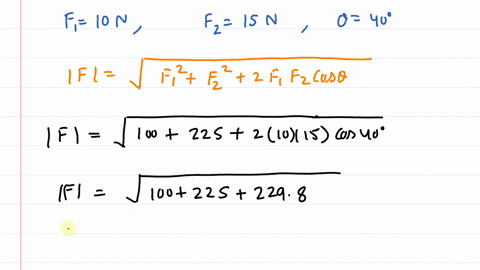 F₁ = 10 N, F₂ = 15 N, θ = 40°
|F| = √(F₁² + F₂² + 2 F₁ F₂ Cosθ)
|F| = √(100 + 225 + 2(10)(15) cos 40°)
|F| = √(100 + 225 + 229.8)